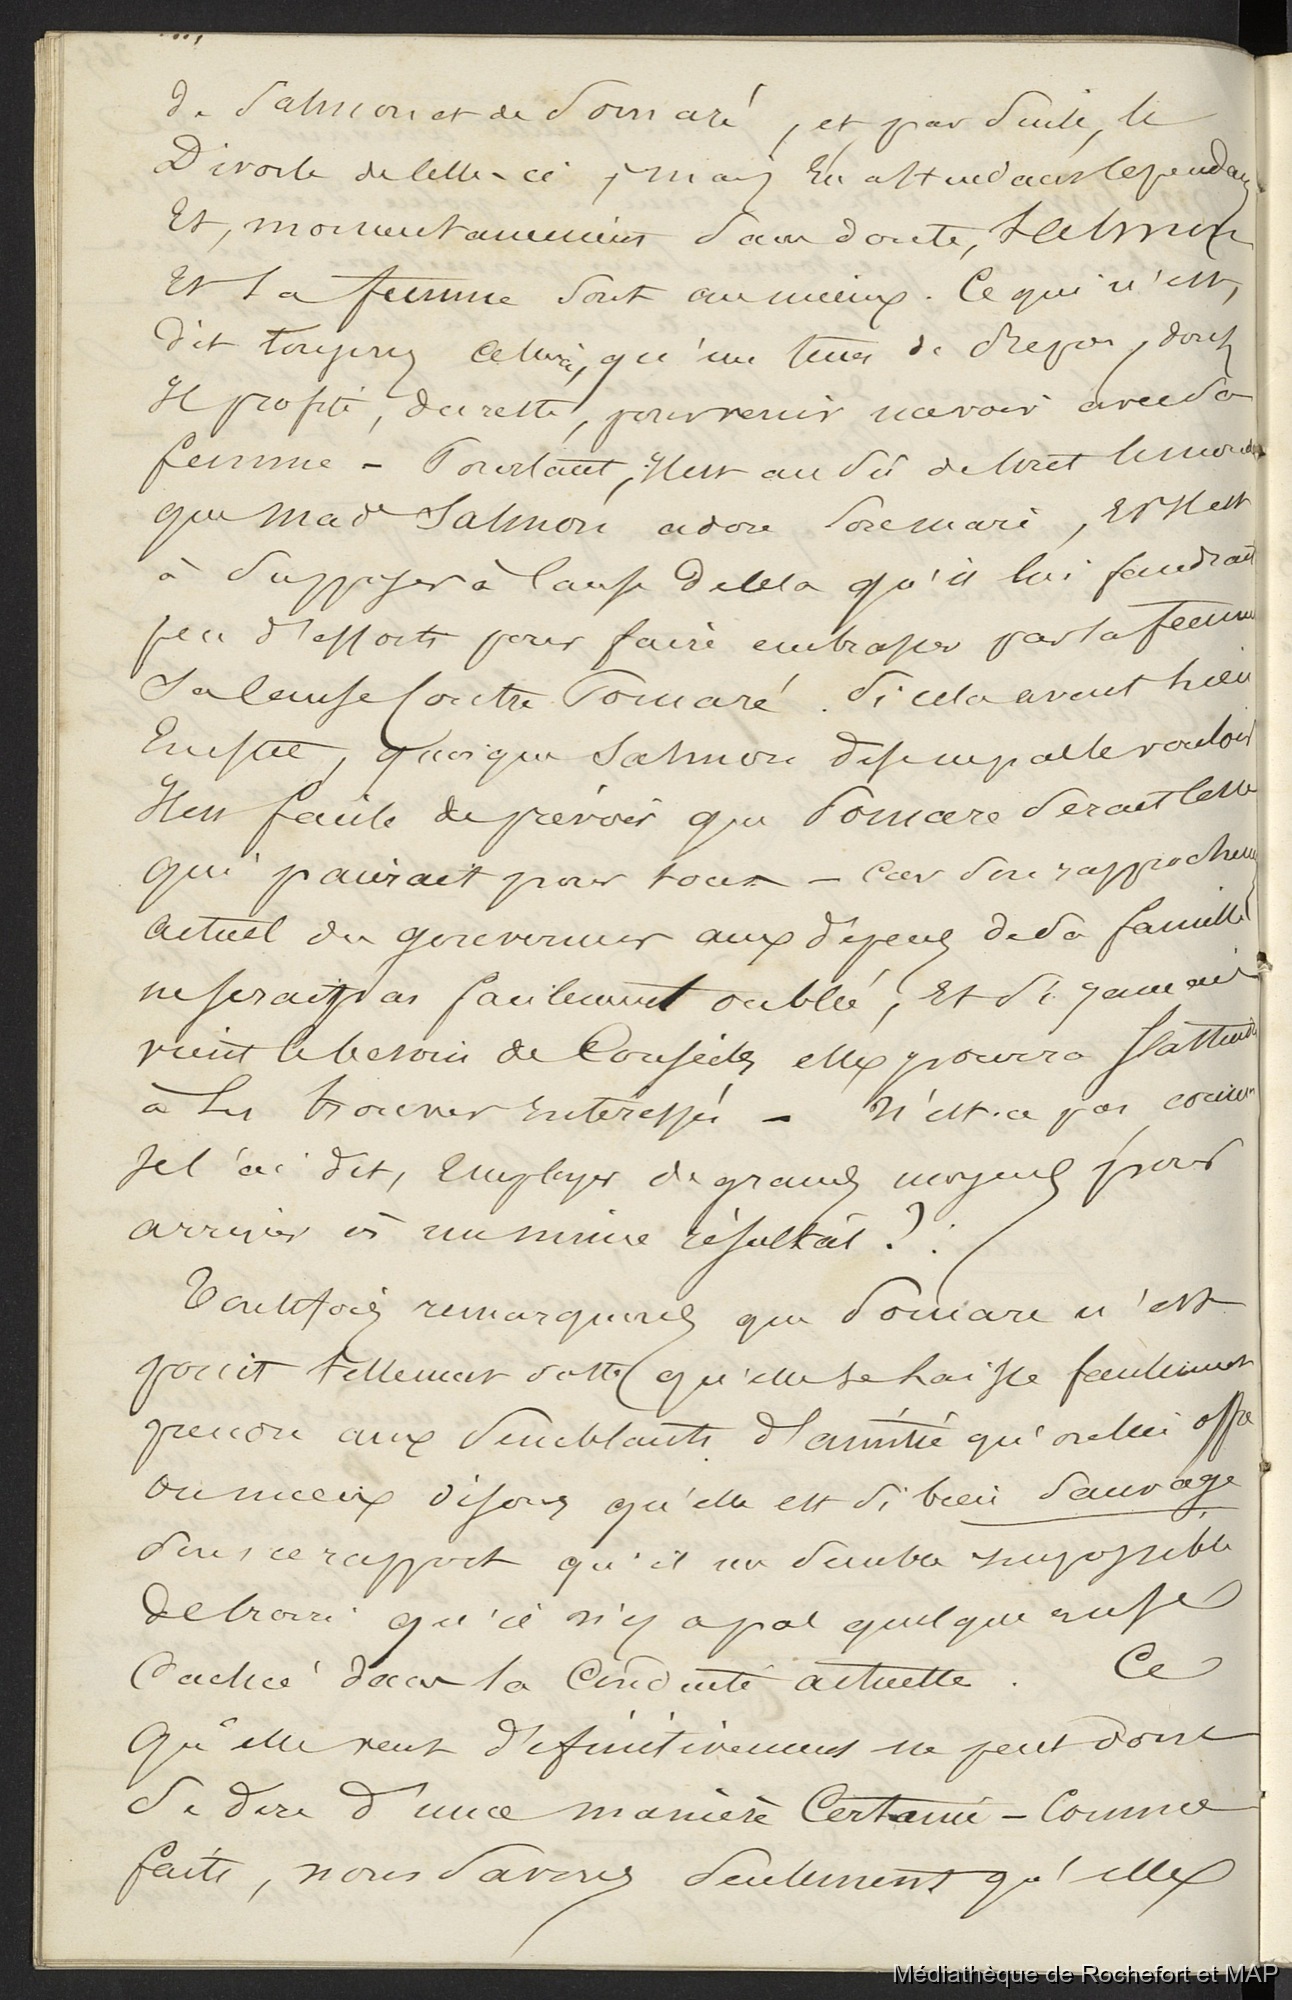 de Salmon et de Pomaré, et par suite, le
Divorce de celle-ci ; mais En attendant cependant
Et, momentanement sans doute, Salmon
Et sa femme sont au mieux. Ce qui n'est,
dit toujours celui-ci, qu'un tems de repos, dont
Il profite, du reste, pour venir                 avec sa
femme - Pourtant, Il est au su de tout le monde
que Made Salmon adore son mari, Et Il est
à supposer à cause de cela qu'il lui faudrait
peu d'efforts pour faire embrasser par sa femme
Sa cause contre Pomaré. Si cela avait lieu
Ensuite, quoique Salmon dise ne pas le vouloir
Il est facile de prévoir que Pomare serait celle
qui paierait pour tous - car son rapprochement
actuel du gouverneur aux dépens de sa famille
ne serait pas facilement oublié, Et si jamais
vient le besoin de Conseils elle pourra s'attendre
à les trouver Intéressés - N'est-ce pas, comme
je l'ai dit, Employer de grands moyens pour
arriver à un mince résultat ?.
Toutefois remarquons que Pomare n'est
point tellement sotte qu'elle se laisse facilement
prendre aux semblants d'amitié qu'on lui offre
ou mieux disons qu'elle est si bien sauvage
sous ce rapport qu'il me semble Impossible
de croire qu'il n'y a pas quelque ruse
Cachée dans sa Conduite actuelle. Ce
qu'elle veut définitivement ne peut donc
se dire d'une manière Certaine - Comme
faits, nous savons seulement qu'elle
Médiathèque de Rochefort et MAP